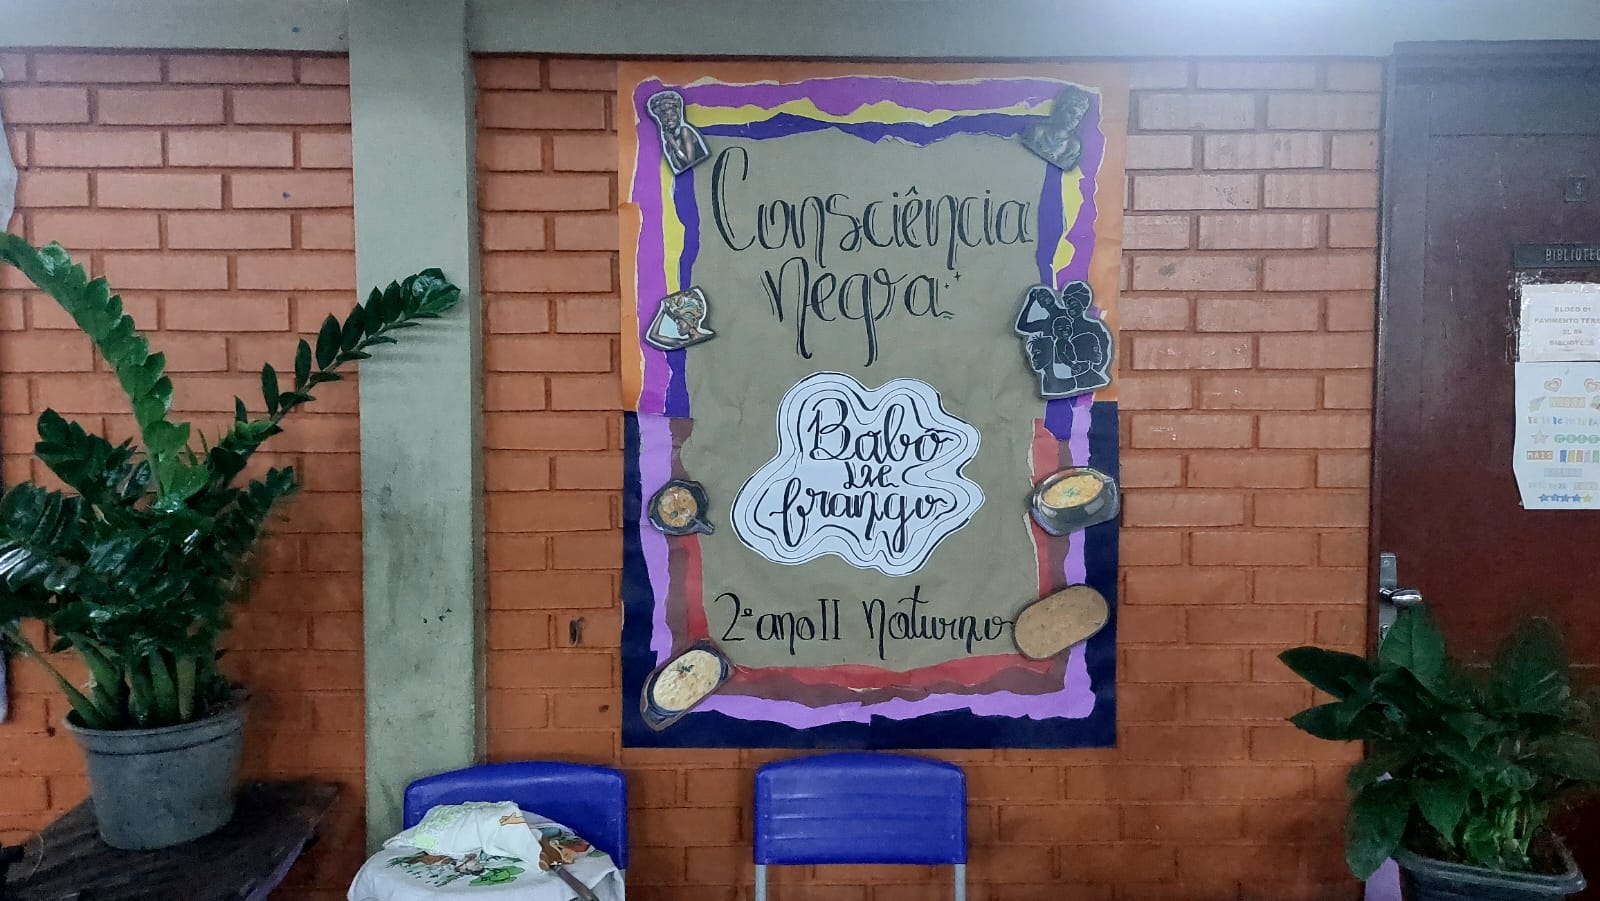 Consciência
Negra
Babo
de
frango
2º ano II Noturno
BIBLIOTEC
BLOCO 01
PAVIMENTO TÉRR
BIBLIOTECA
MAIS